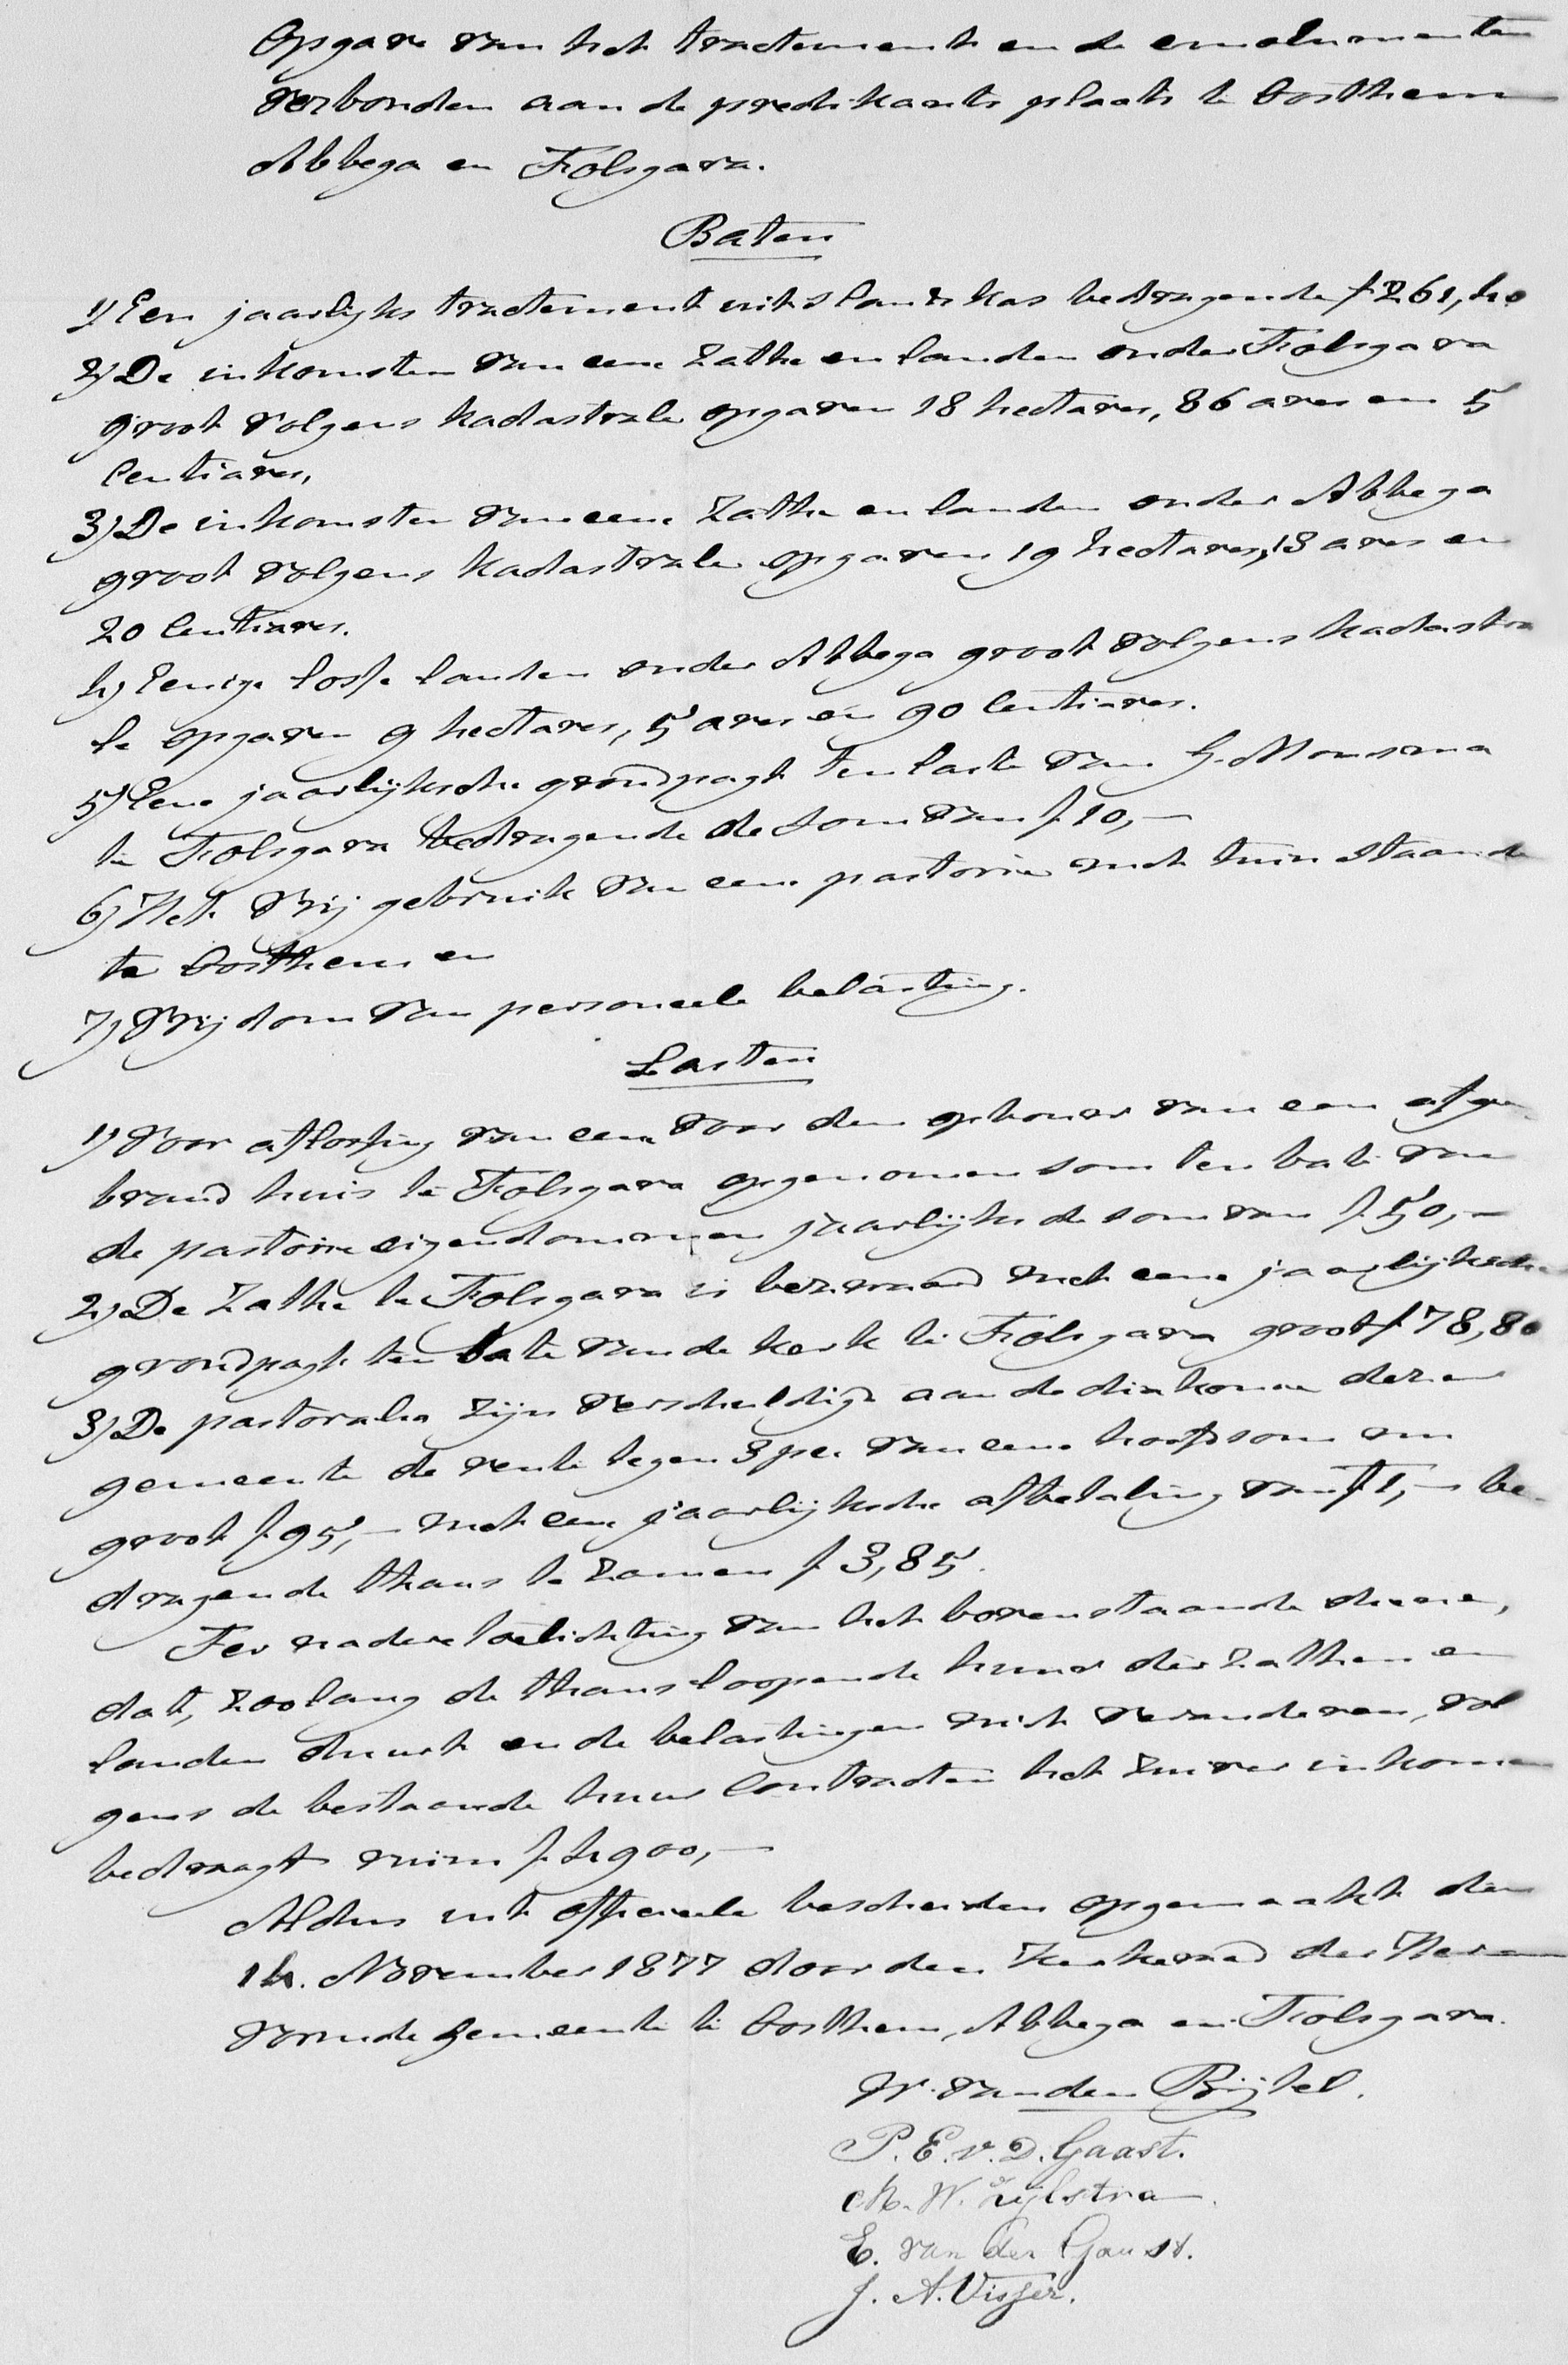 Opgave van het tractement en de emolumenten
verbonden aan de predikants plaats te Oosthem
Abbega en Folsgara.
Baten
1) Een jaarlijks tractement uit 's lands kas bedragende f 261,40
2) De inkomsten van eene Zathe en landen onder Folsgara
groot volgens kadastrale opgaven 18 hectares, 86 ares en 5
Centiares,
3) De inkomsten van eene Zathe en landen onder Abbega
groot volgens kadastrale opgaven 19 hectares, 13 ares en
20 Centiares.
4) Eenige losse landen onder Abbega groot volgens kadastra
le opgaven 9 hectares, 5 ares en 90 Centiares.
5) Eene jaarlijksche grondpagt ten laste van
te Folsgara bedragende de som van f. 10,-
6) Het vrij gebruik van eene pastorie met tuin staande
te Oosthem en
7) Vrijdom van personeele belasting.
Lasten
1) Voor aflossing van eene voor den opbouw van een afge
brand huis te Folsgara opgenomen som ten bate van
de pastorie eigendommen jaarlijks de som van f. 50,-
2) De Zathe te Folsgara is bezwaard met eene jaarlijksche
grondpagt ten bate van de kerk te Folsgara groot f 78,80
3) De pastoralia zijn verschuldigd aan de diakonie dezer
gemeente de rente tegen 3 pct. van eene hoofdsom van
groot f. 95,- met eene jaarlijksche afbetaling van f 1,- be-
dragende thans te zamen f 3,85.
Ter nadere toelichting van het bovenstaande diene,
dat, zoolang de thans loopende huur der zathen en
landen duurt en de belastingen niet veranderen, vol
gens de bestaande huur Contracten het zuiver inkomen
bedraagt ruim f. 4900,-
Aldus uit officieele bescheiden opgemaakt den
14. November 1877 door den Kerkeraad der Her
vormde gemeente te Oosthem, Abbega en Folsgara.
W. van den Bijtel.
P. E. v. D. Gaast.
M. W. Zijlstra.
E. van der Gaast.
J. A. Visser.